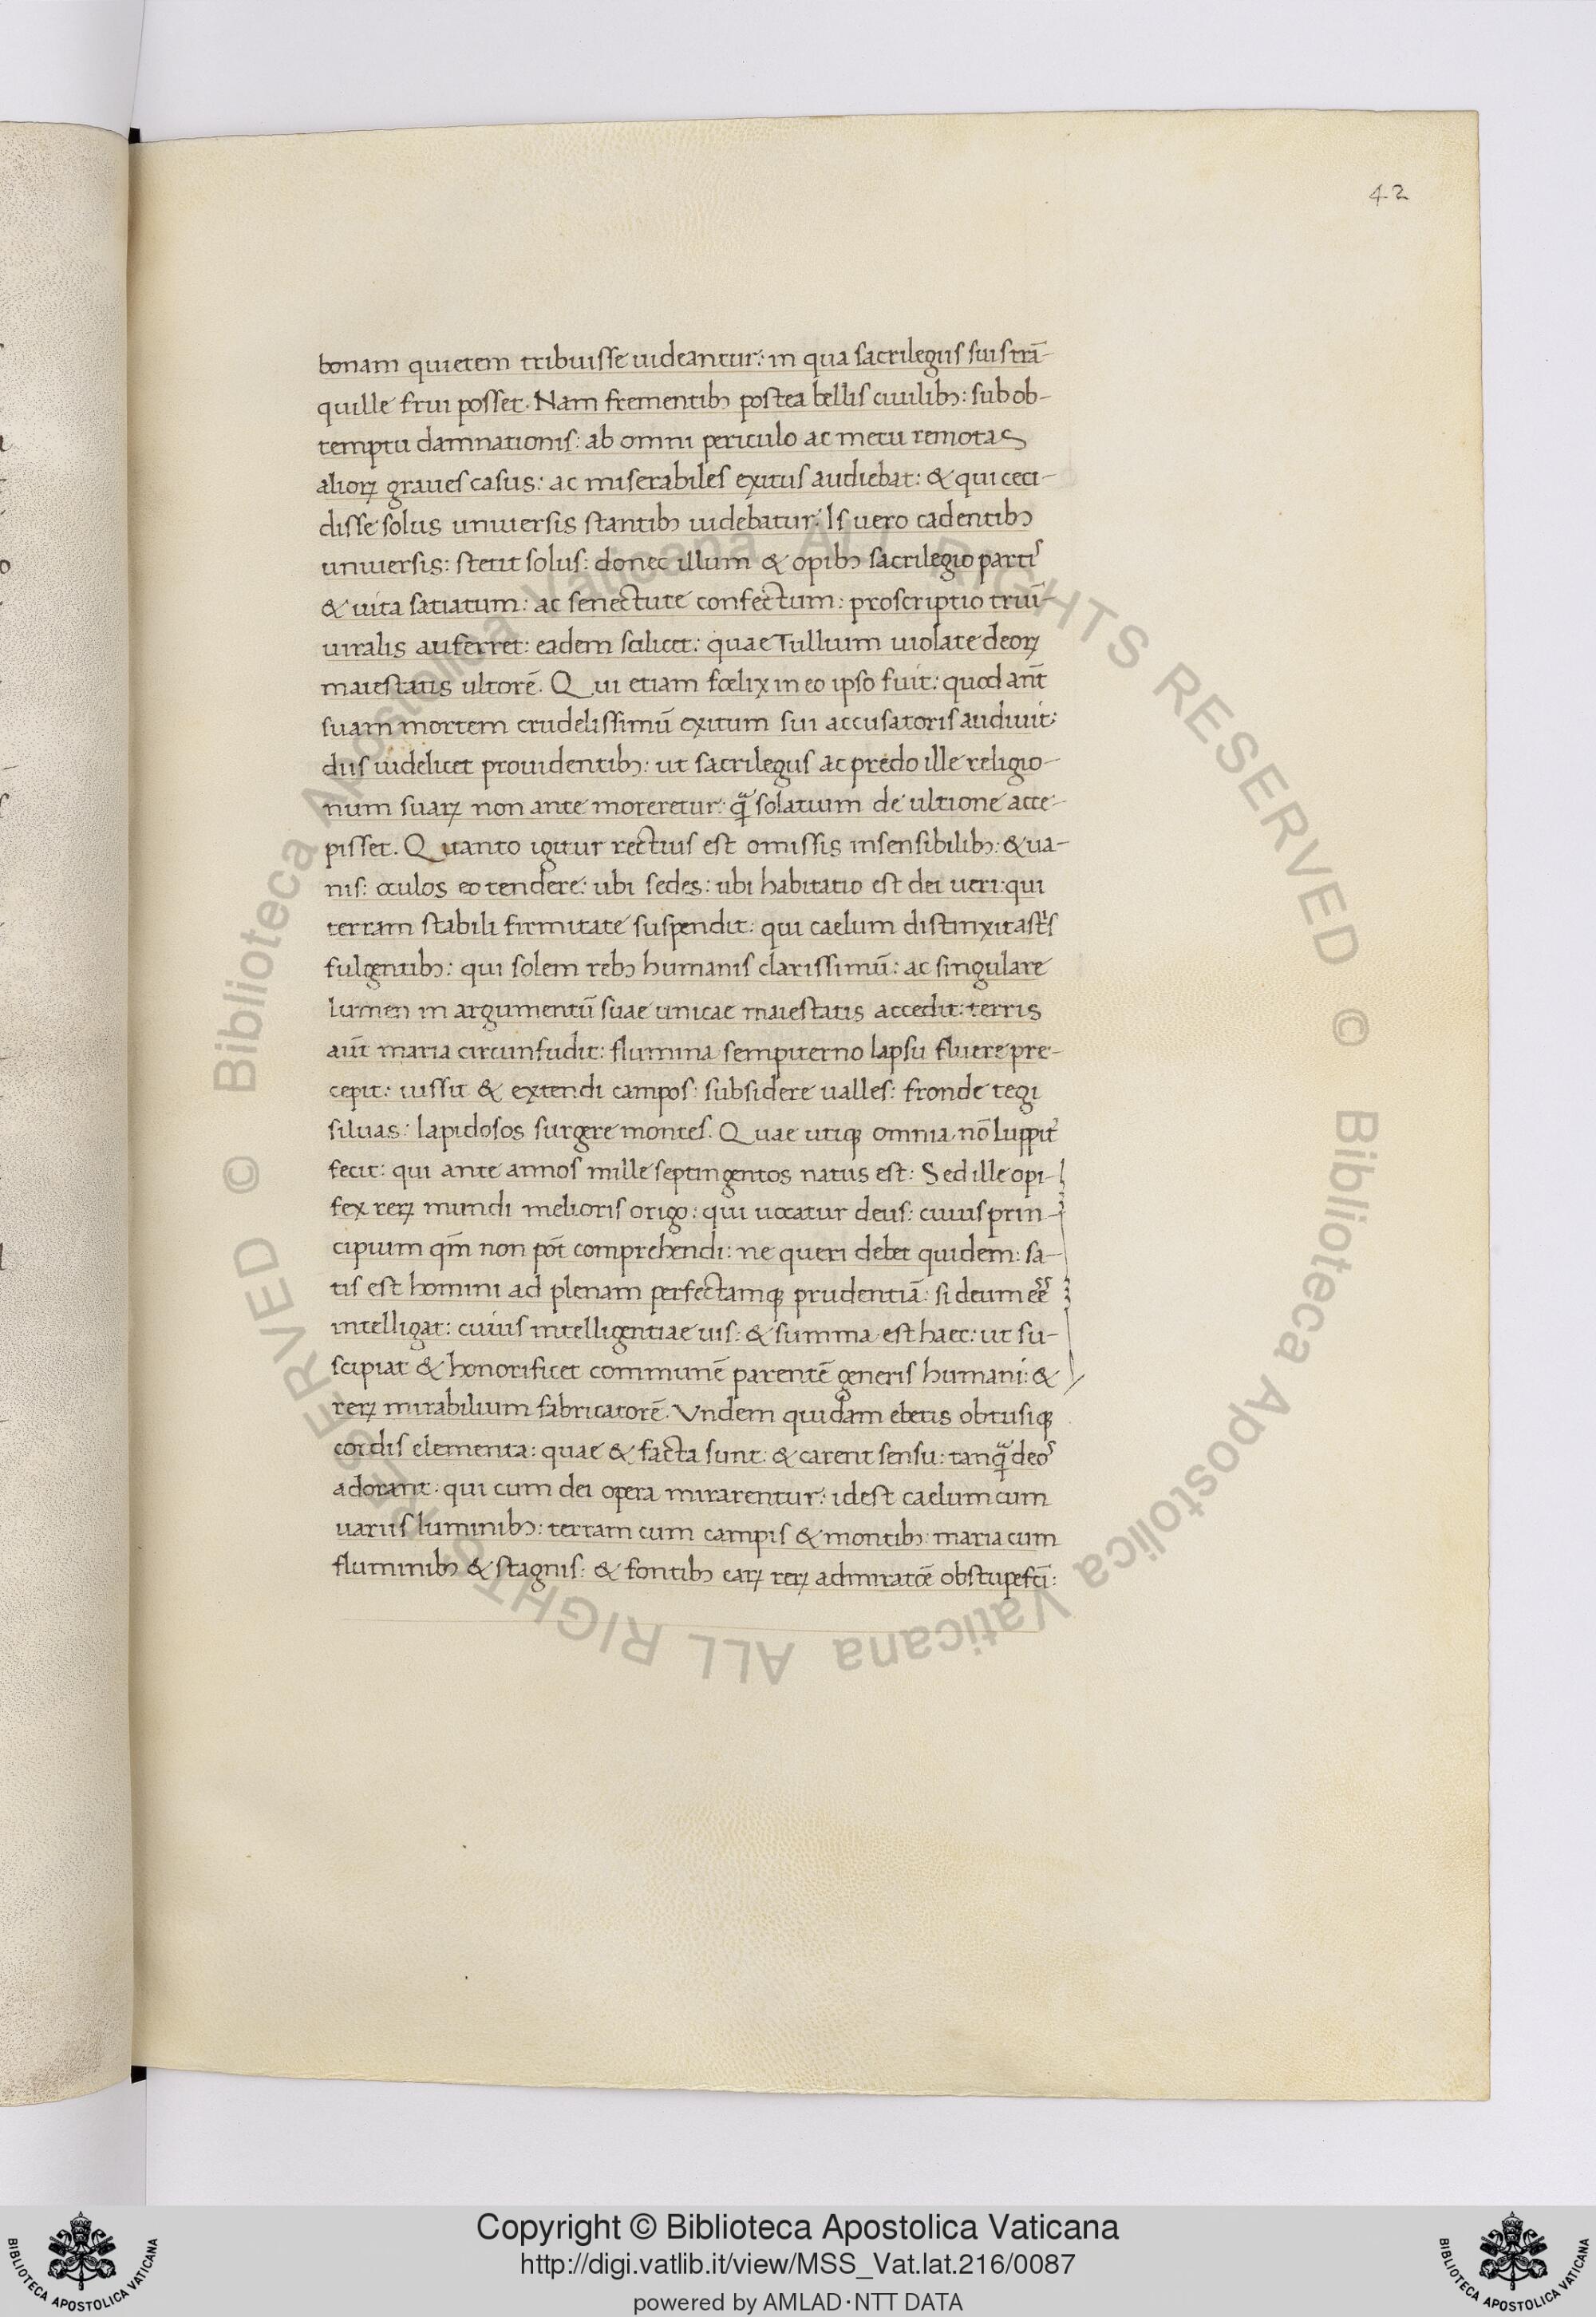 42
bonam quietem tribuisse uideantur: in qua sacrilegiis suis trā-
quille frui posset. Nam frementibꝫ postea bellis ciuilibꝫ: sub ob-
temptu damnationis: ab omni periculo ac metu remotas
alioꝝ graues casus: ac miserabiles exitus audiebat: & qui ceci-
disse solus uniuersis stantibꝫ uidebatur. Is uero cadentibꝫ
uniuersis: stetit solus: donec illum & opibꝫ sacrilegio partis
& uita satiatum: ac senectute confectum: proscriptio triū-
uiralis auferret: eadem scilicet: quae Tullium uiolate deoꝝ
maiestatis ultorē. Qui etiam fœlix in eo ipso fuit: quod añt
suam mortem crudelissimū exitum sui accusatoris audiuit:
diis uidelicet prouidentibꝫ: ut sacrilegus ac predo ille religio-
num suaꝝ non ante moreretur: q̄ solatium de ultione acce-
pisset. Quanto igitur rectius est omissis insensibilibꝫ: & ua-
nis: oculos eo tendere: ubi sedes: ubi habitatio est dei ueri: qui
terram stabili firmitate suspendit: qui caelum distinxit astⁱs
fulgentibꝫ: qui solem rebꝫ humanis clarissimū: ac singulare
lumen in argumentū suae unicae maiestatis accedit: terris
aūt maria circunfudit: flumina sempiterno lapsu fluere pre-
cepit: iussit & extendi campos: subsidere ualles: fronde tegi
siluas: lapidosos surgere montes. Quae utiqꝫ omnia nō Iuppit̉
fecit: qui ante annos mille septingentos natus est: Sed ille opi-
fex reꝝ mundi melioris origo: qui uocatur deus: cuius prin-
cipium qm̄ non pōt comprehendi: ne queri debet quidem: sa-
tis est homini ad plenam perfectamqꝫ prudentiā: si deum eē
intelligat: cuius intelligentiae uis: & summa est haec: ut su-
scipiat & honorificet communē parentē generis humani: &
reꝝ mirabilium fabricatorē. Vndem quidam ebetis obtusiqꝫ
cordis elementa: quae & facta sunt: & carent sensu: tanq̄ deos
adorant: qui cum dei opera mirarentur: idest caelum cum
uariis luminibꝫ: terram cum campis & montibꝫ: maria cum
fluminibꝫ & stagnis: & fontibꝫ eaꝝ reꝝ admiratōe obstupefc̄i:
© Biblioteca Apostolica Vaticana ALL RIGHTS RESERVED
© Biblioteca Apostolica Vaticana ALL RIGHTS RESERVED
Copyright © Biblioteca Apostolica Vaticana
http://digi.vatlib.it/view/MSS_Vat.lat.216/0087
powered by AMLAD·NTT DATA
BIBLIOTECA APOSTOLICA VATICANA
BIBLIOTECA APOSTOLICA VATICANA